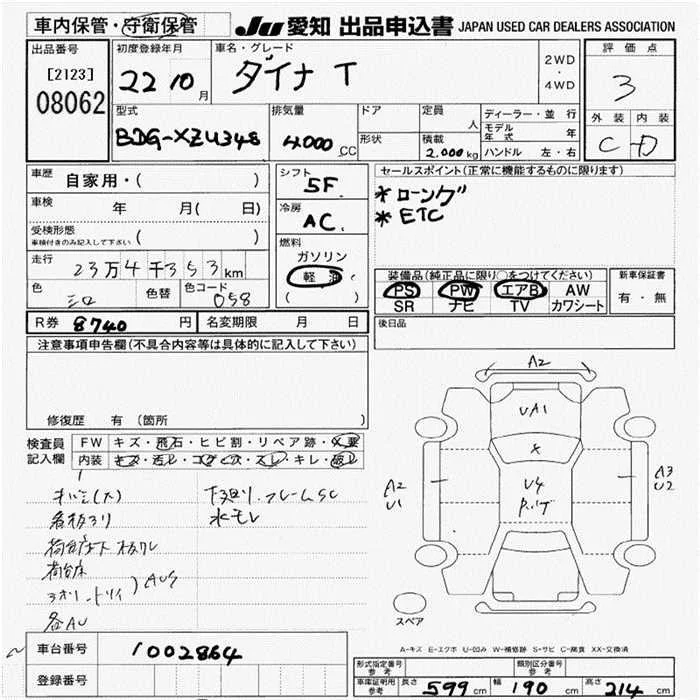 車内保管・守衛保管
JU 愛知 出品申込書 JAPAN USED CAR DEALERS ASSOCIATION
出品番号
[2123]
08062
初度登録年月
22 10月
車名・グレード
ダイナ T
2WD
・
4WD
評価点
3
外装 内装
C D
型式
BDG-XZU348
排気量
4000 CC
ドア
形状
定員
人
積載
2.000kg
ディーラー・並行
モデル年式 年
ハンドル 左・右
車歴 自家用・( )
車検 年 月( 日)
受検形態
車検付きのみ記入して下さい ( )
走行
23万4千353km
色
シロ
色替
色コード
058
シフト
5F
冷房
AC
燃料
ガソリン
軽油
( )
セールスポイント(正常に機能するものに限ります)
*ロング
*ETC
装備品(純正品に限り○をつけてください)
PS PW エアB AW
SR ナビ TV カワシート
新車保証書
有・無
R券 8740円
名変期限 月 日
後日品
注意事項申告欄(不具合内容等は具体的に記入して下さい)
修復歴 有(箇所 )
検査員
記入欄
FW キズ・飛石・ヒビ割・リペア跡・×要
内装 キズ・汚レ・コゲ・穴・スレ・キレ・破レ
下廻リ、フレームSC
看板ヨリ
水モレ
荷台床
各AU
A2
UA1
×
U4
A2
U1
A3
U2
スペア
A-キズ E-エクボ U-凹み W-補修跡 S-サビ C-腐食 XX-交換済
車台番号 1002864
登録番号
形式指定番号
参考
類別区分番号
参考
車庫証明用
参考
長さ 599cm 幅 190cm 高さ 214cm